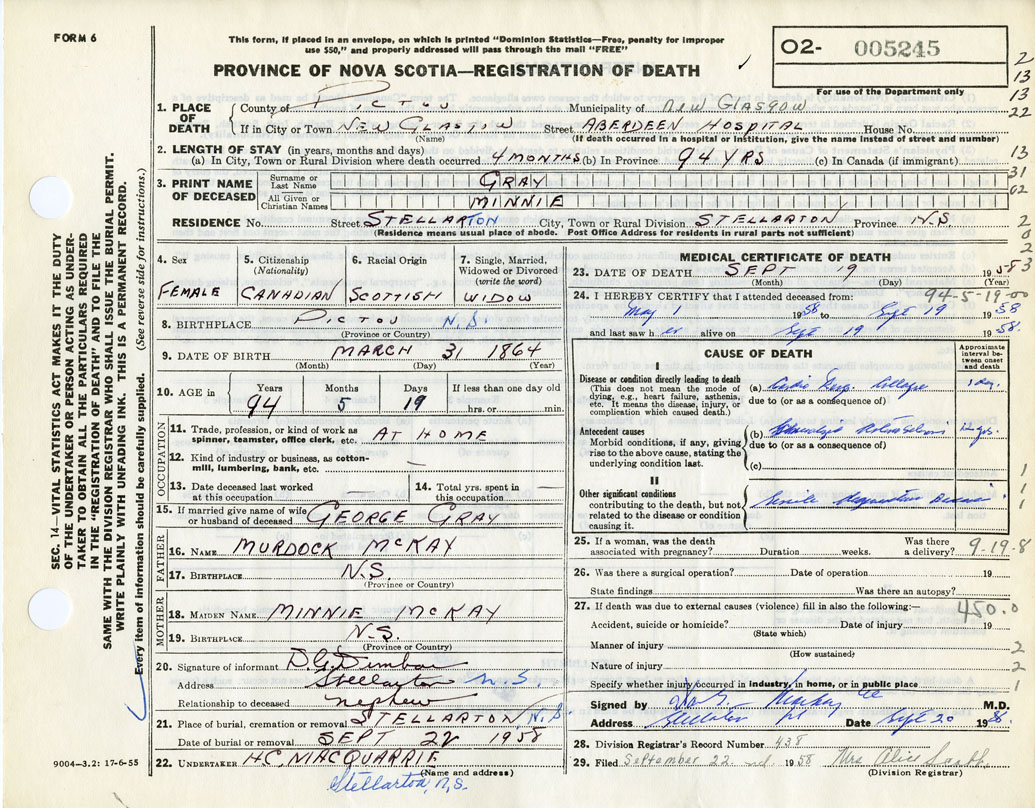 FORM 6
This form, if placed in an envelope, on which is printed "Dominion Statistics—Free, penalty for improper
use $50," and properly addressed will pass through the mail "FREE"
O2- 005245
For use of the Department only
PROVINCE OF NOVA SCOTIA—REGISTRATION OF DEATH
1. PLACE OF DEATH
County of PICTOU Municipality of NEW GLASGOW
If in City or Town NEW GLASGOW Street ABERDEEN HOSPITAL House No.
(Name) (If death occurred in a hospital or institution, give the name instead of street and number)
2. LENGTH OF STAY (in years, months and days)
(a) In City, Town or Rural Division where death occurred 4 MONTHS (b) In Province 94 YRS (c) In Canada (if immigrant)
3. PRINT NAME OF DECEASED
Surname or Last Name GRAY
All Given or Christian Names MINNIE
RESIDENCE No. Street STELLARTON City, Town or Rural Division STELLARTON Province N.S.
(Residence means usual place of abode. Post Office Address for residents in rural parts not sufficient)
4. Sex FEMALE
5. Citizenship (Nationality) CANADIAN
6. Racial Origin SCOTTISH
7. Single, Married, Widowed or Divorced (write the word) WIDOW
8. BIRTHPLACE PICTOU N.S.
(Province or Country)
9. DATE OF BIRTH MARCH 31 1864
(Month) (Day) (Year)
10. AGE in Years Months Days If less than one day old
94 5 19 hrs. or min.
OCCUPATION
11. Trade, profession, or kind of work as spinner, teamster, office clerk, etc. AT HOME
12. Kind of industry or business, as cotton-mill, lumbering, bank, etc. —
13. Date deceased last worked at this occupation —
14. Total yrs. spent in this occupation —
15. If married give name of wife or husband of deceased GEORGE GRAY
FATHER
16. NAME MURDOCK McKAY
17. BIRTHPLACE N.S.
(Province or Country)
MOTHER
18. MAIDEN NAME MINNIE McKAY
19. BIRTHPLACE N.S.
(Province or Country)
20. Signature of informant D.G. Dunbar
Address Stellarton N.S.
Relationship to deceased nephew
21. Place of burial, cremation or removal STELLARTON N.S.
Date of burial or removal SEPT 22 1958
22. UNDERTAKER H.C. MACQUARRIE
(Name and address)
Stellarton, N.S.
MEDICAL CERTIFICATE OF DEATH
23. DATE OF DEATH SEPT 19 1958
(Month) (Day) (Year)
94-5-19-00
24. I HEREBY CERTIFY that I attended deceased from:
May 1 1958 to Sept 19 1958
and last saw her alive on Sept 19 1958.
CAUSE OF DEATH
Approximate interval between onset and death
I
Disease or condition directly leading to death
(This does not mean the mode of dying, e.g., heart failure, asthenia, etc. It means the disease, injury, or complication which caused death.)
(a) Collapse 1 day.
due to (or as a consequence of)
Antecedent causes
Morbid conditions, if any, giving rise to the above cause, stating the underlying condition last.
(b) 12 yrs.
due to (or as a consequence of)
(c)
II
Other significant conditions
contributing to the death, but not related to the disease or condition causing it.
Senile
25. If a woman, was the death associated with pregnancy? Duration weeks. Was there a delivery? 9-19-8
26. Was there a surgical operation? Date of operation 19
State findings Was there an autopsy?
27. If death was due to external causes (violence) fill in also the following:— 450.0
Accident, suicide or homicide? Date of injury 19
(State which)
Manner of injury
(How sustained)
Nature of injury
Specify whether injury occurred in industry, in home, or in public place
Signed by M.D.
Address Stellarton Date Sept 20 1958.
28. Division Registrar's Record Number 438
29. Filed September 22nd. 1958 Mrs Alice Smith
(Division Registrar)
SEC. 14—VITAL STATISTICS ACT MAKES IT THE DUTY
OF THE UNDERTAKER OR PERSON ACTING AS UNDER-
TAKER TO OBTAIN ALL THE PARTICULARS REQUIRED
IN THE "REGISTRATION OF DEATH" AND TO FILE THE
SAME WITH THE DIVISION REGISTRAR WHO SHALL ISSUE THE BURIAL PERMIT.
WRITE PLAINLY WITH UNFADING INK. THIS IS A PERMANENT RECORD.
Every item of information should be carefully supplied. (See reverse side for instructions.)
9004—3.2: 17-6-55
2
13
13
22
13
31
62
2
0
2
53
1
1
1
2
2
1